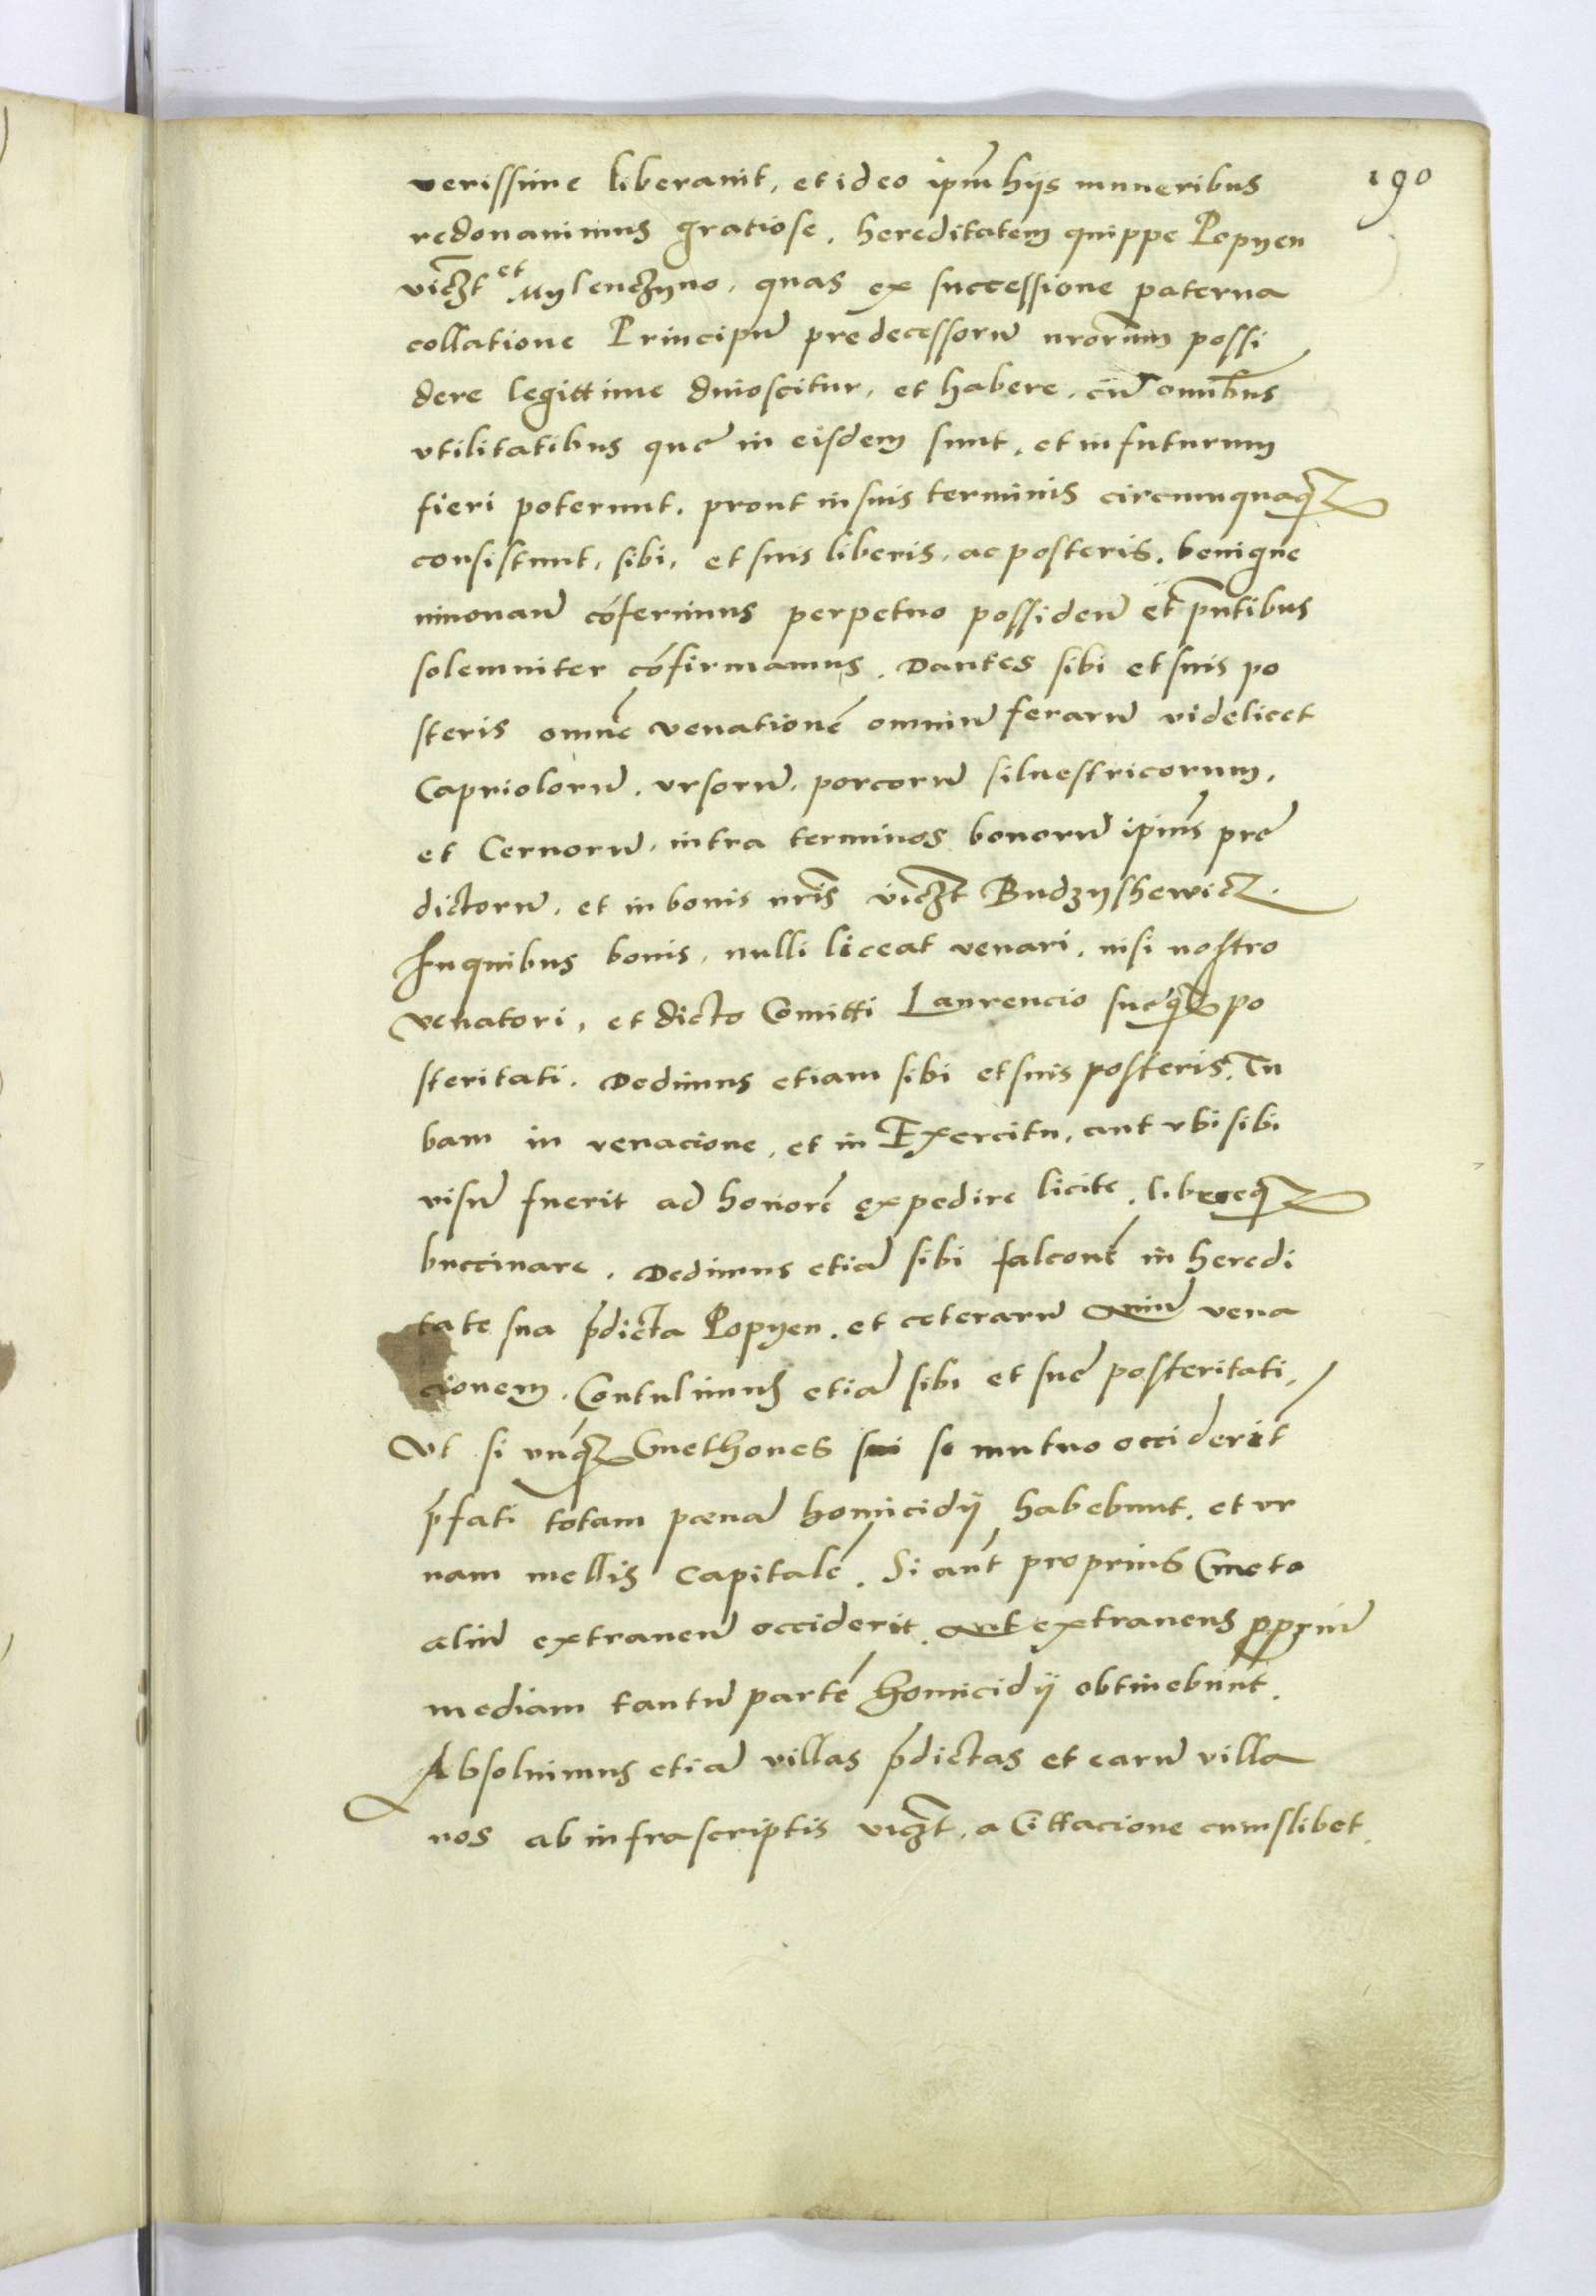 190
verissime liberauit, et ideo ip̃m hijs muneribus
redonauimus gratiose, hereditatem quippe Popyen
vicz̃t et Mylenczyno, quas ex successione paterna
collatione Principũ predecessorũ nrorum̃ possi
dere legittime dinoscitur, et habere, cũ omnib̃us
vtilitatibus que in eisdem sunt, et in futurum
fieri poterunt, prout in suis terminis circumquaq̃
consistunt, sibi, et suis liberis, ac posteris, benigne
innouan̄ cõferimus perpetuo possiden̄ et p̃ntibus
solemniter cõfirmamus. Dantes sibi et suis po
steris omnẽ venationẽ omniũ ferarũ videlicet
Capriolorũ, vrsorũ, porcorũ siluestricorum,
et Ceruorũ, intra terminos bonorũ ipiũs pre
dictorũ, et in bonis nr̃is vicz̃t Budzyshewicz.
In quibus bonis, nulli liceat venari, nisi nostro
venatori, et dicto Comitti Laurencio sueq̃ po
steritati. Dedimus etiam sibi et suis posteris, Tu
bam in venacione, et in Exercitu, aut vbi sibi
visũ fuerit ad honorẽ expedire licite, libereq̃
buccinare. Dedimus etiã sibi falconẽ in heredi
tate sua p̃dicta Popyen, et ceterarũ auiũ vena
cionem. Contulimus etiã sibi et sue posteritati,
Vt si vnq̃ Cmethones sui se mutuo occiderĩt
p̃fati totam pœnã homicidij habebunt, et vr
nam mellis Capitalẽ. Si aũt proprius Cmeto
aliũ extraneũ occiderit, aut extraneus ppriũ
mediam tantũ partẽ homicidij obtinebunt.
Absoluimus etiã villas p̃dictas et earũ villa
nos ab infrascriptis vicz̃t, a Cittacione cuiuslibet.